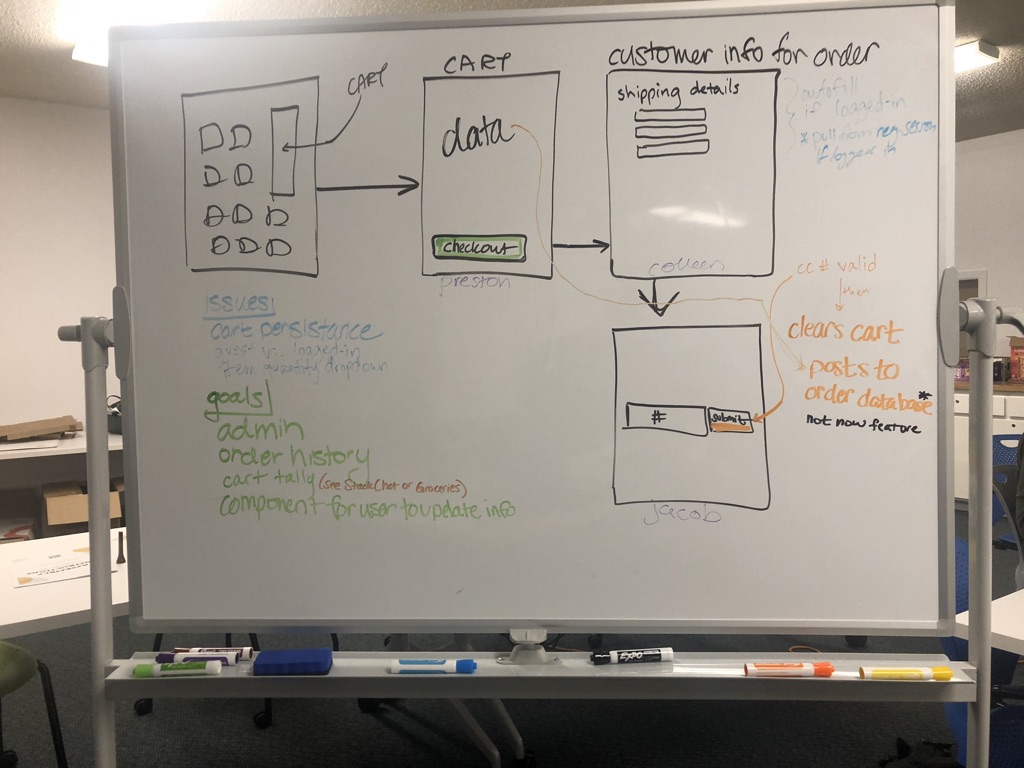 CART
CART
data
checkout
preston
customer info for order
shipping details
colleen
autofill
if logged-in
* pulldown req.session
if logged in
cc # valid
then
clears cart
posts to
order database*
not now feature
#
submit
jacob
issues
cart persistance
guest vs. logged-in
item quantity dropdown
goals
admin
order history
cart tally (see StackChat or Groceries)
component for user to update info
EXPO